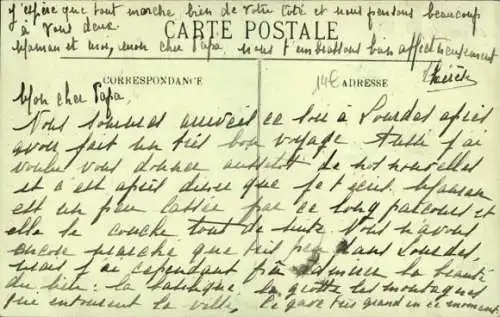 J'espère que tout marche bien de votre côté et nous pensons beaucoup
à vous deux.
CARTE POSTALE
Maman et moi, mon cher Papa, nous t'embrassons bien affectueusement
CORRESPONDANCE
14€ ADRESSE
Mon cher Papa,
Nous sommes arrivés ce soir à Lourdes après
avoir fait un très bon voyage. Aussi j'ai
voulu vous donner aussitôt de nos nouvelles
et c'est après dîner que je t'écris. Maman
est un peu lassée par ce long parcours et
elle se couche tout de suite. Nous n'avons
encore marché que très peu dans Lourdes,
mais j'ai cependant pu admirer la beauté
du lieu: la basilique, la grotte, les montagnes
qui entourent la ville, le gave très grand en ce moment